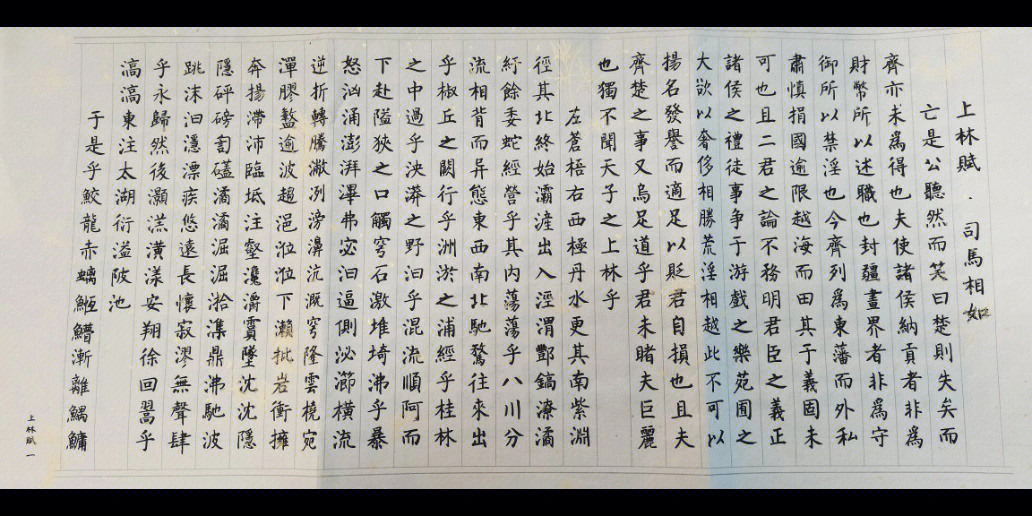 上林賦．司馬相如
亡是公聽然而笑曰楚則失矣而
齊亦未爲得也夫使諸侯納貢者非爲
財幣所以述職也封疆畫界者非爲守
御所以禁淫也今齊列爲東藩而外私
肅慎捐國逾限越海而田其于義固未
可也且二君之論不務明君臣之義正
諸侯之禮徒事爭于游戲之樂苑囿之
大欲以奢侈相勝荒淫相越此不可以
揚名發譽而適足以貶君自損也且夫
齊楚之事又烏足道乎君未睹夫巨麗
也獨不聞天子之上林乎
左蒼梧右西極丹水更其南紫淵
徑其北終始灞滻出入涇渭酆鎬潦潏
紆餘委蛇經營乎其内蕩蕩乎八川分
流相背而异態東西南北馳騖往來出
乎椒丘之闕行乎洲淤之浦經乎桂林
之中過乎泱漭之野汩乎混流順阿而
下赴隘狹之口觸穹石激堆埼沸乎暴
怒洶涌澎湃滭弗宓汩逼側泌瀄橫流
逆折轉騰潎洌滂濞沆溉穹隆雲橈宛
潬膠盭逾波趨浥涖涖下瀨批岩衝擁
奔揚滯沛臨坻注壑瀺灂霣墜沈沈隱
隱砰磅訇礚潏潏淈淈湁潗鼎沸馳波
跳沫汩㵫漂疾悠遠長懷寂漻無聲肆
乎永歸然後灝溔潢漾安翔徐回翯乎
滈滈東注太湖衍溢陂池
于是乎鮫龍赤螭䱭䲛漸離鰅鱅
上林賦 一